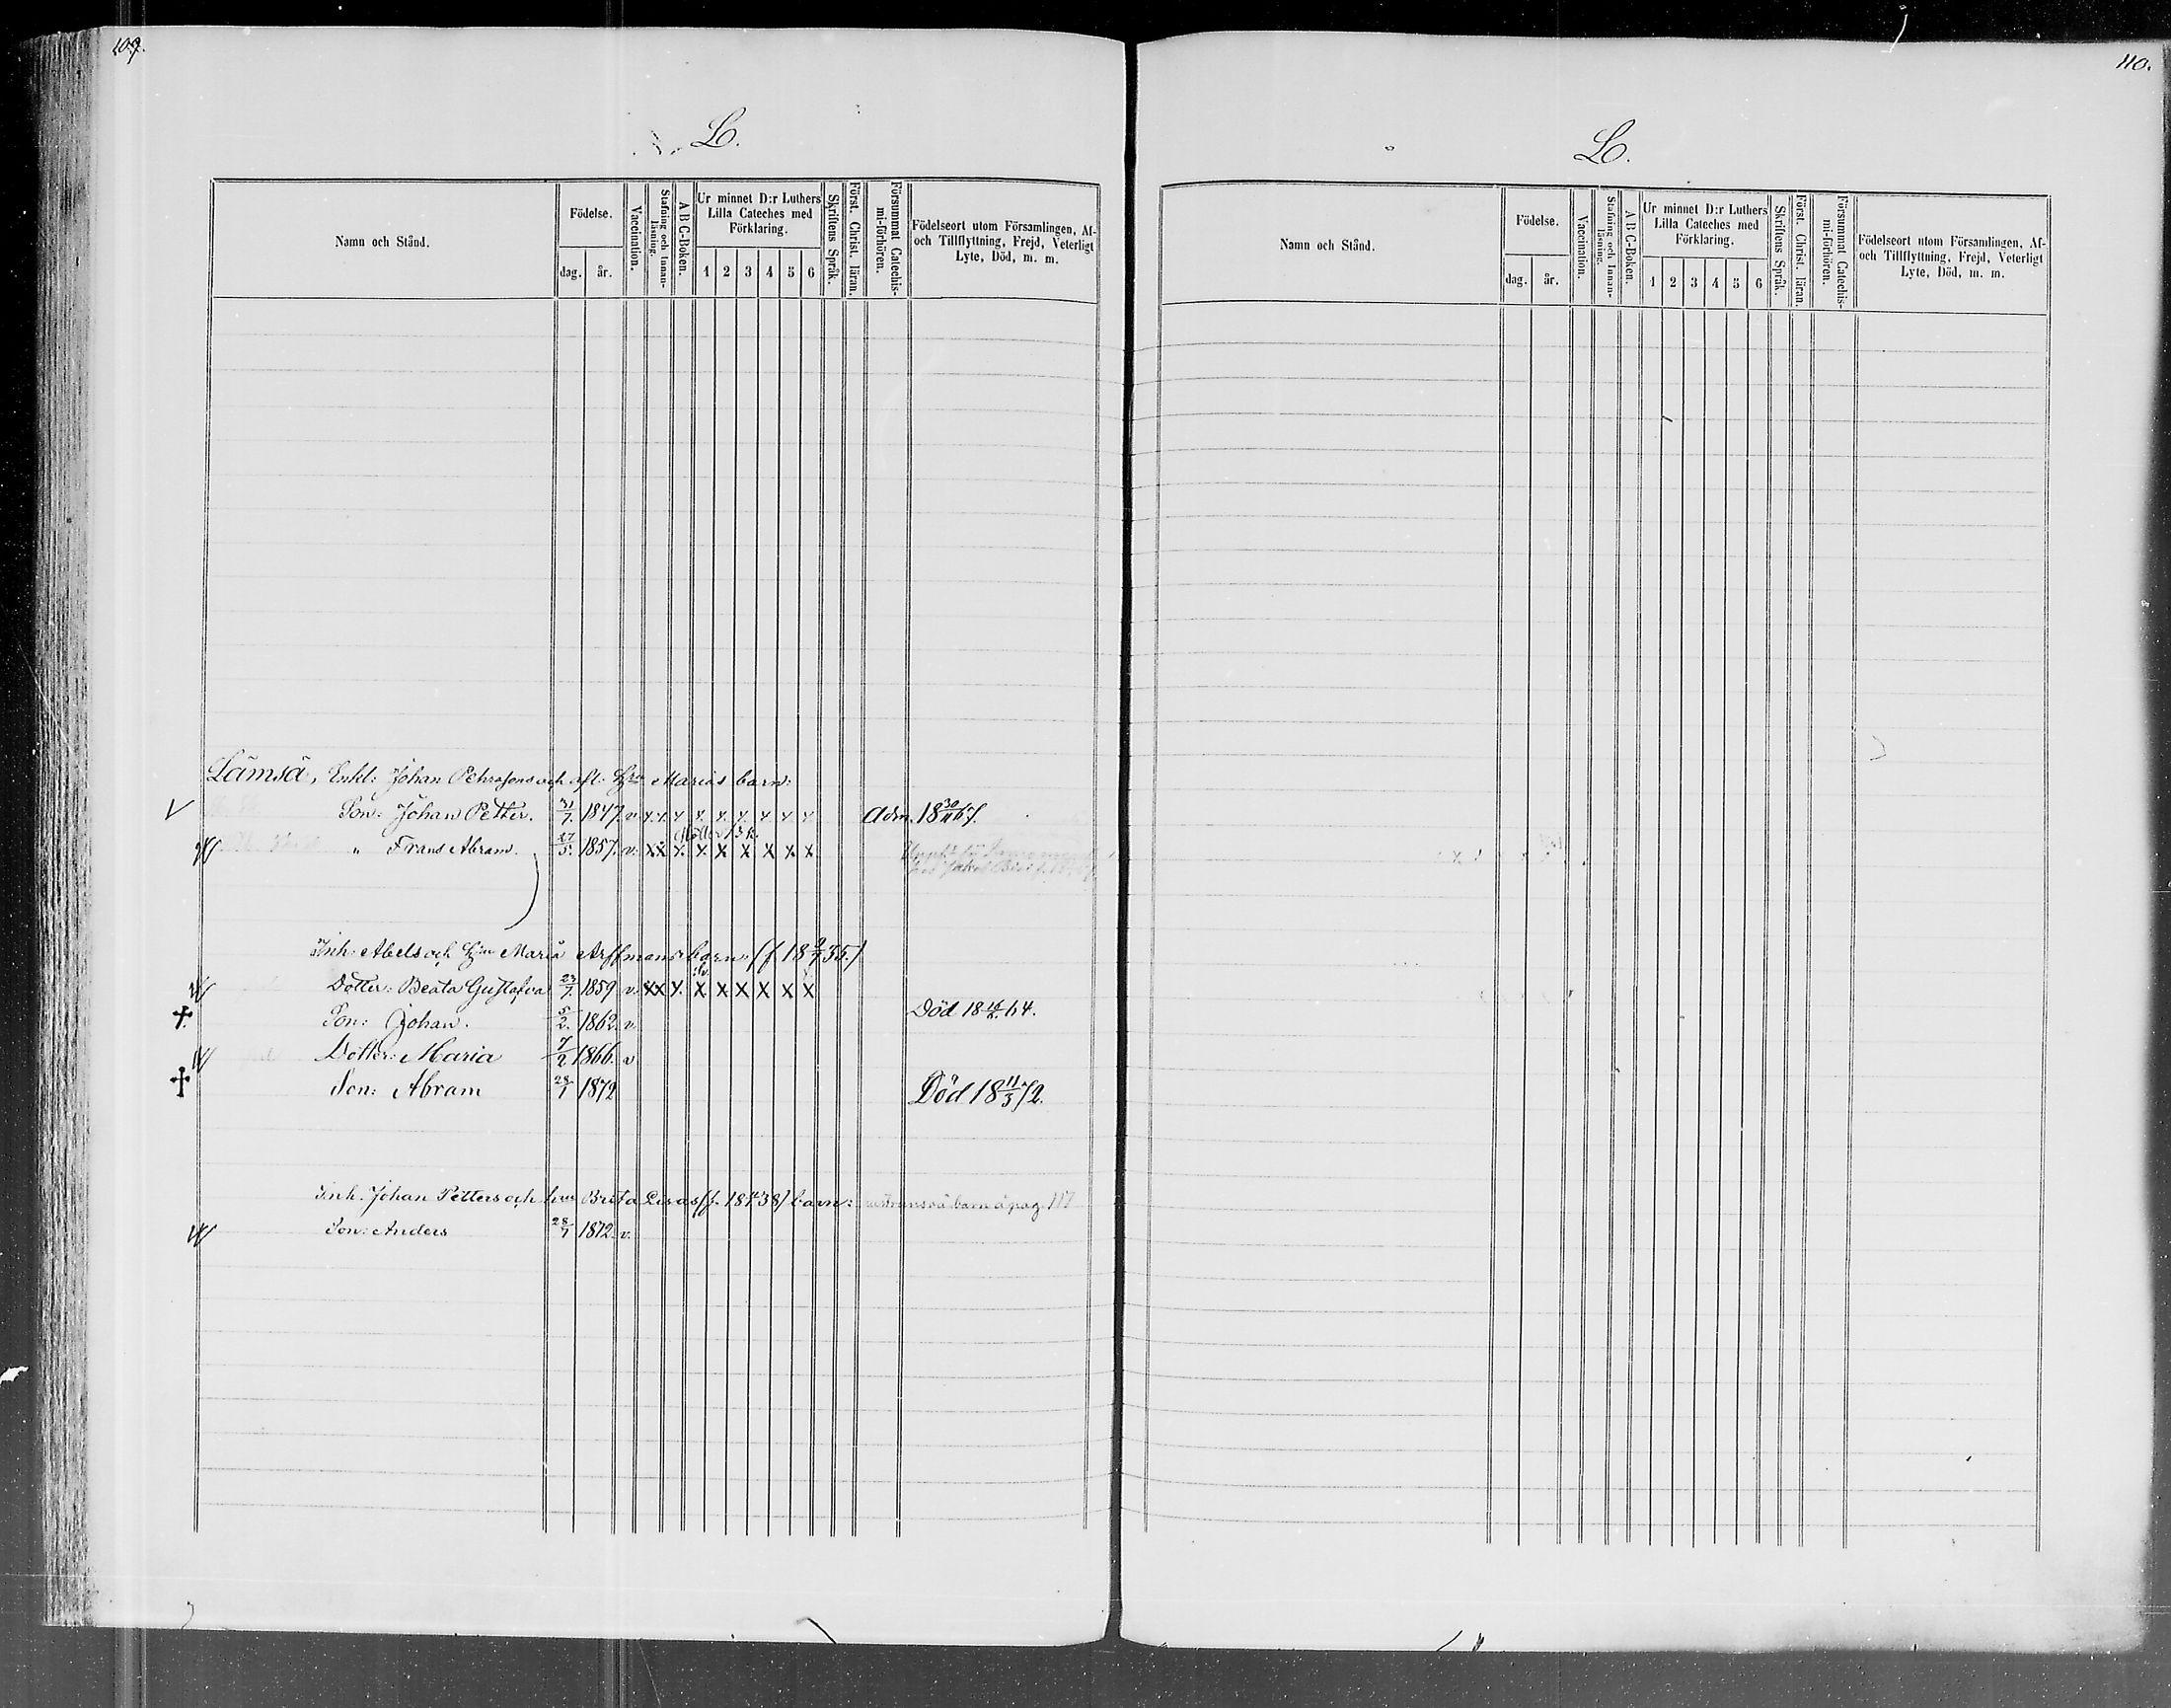 109.
L.
Namn och Stånd.
Födelse.
dag.
år.
Vaccination.
Stafning och Innan-
läsning.
A B C-Boken.
Ur minnet D:r Luthers
Lilla Cateches med
Förklaring.
1 2 3 4 5 6
Skriftens Språk.
Först. Christ. läran.
Försummat Catechis-
mi-förhören.
Födelseort utom Församlingen, Af-
och Tillflyttning, Frejd, Veterligt
Lyte, Död, m. m.
Lämsä, Enkl: Johan Pehrssons och afl: Hru Marias barn:
Son: Johan Petter. 31/7. 1847. v. Adm. 18 30/11 67.
" Frans Abram. 27/5. 1857. v. x x x x x x x x x
Inh: Abels och Hru Maria Arffmans barn: (f. 18 9/7 35.)
Dotter: Beata Gustafva 23/7. 1859 v. x x x. x x x x x x
Son: Johan. 5/2. 1862. v. Död 18 64.
Dotter: Maria 7/2 1866. v
Son: Abram 28/1 1872 Död 18 11/3 72.
Inh. Johan Petters och hru Brita Lisas (f. 18 38) barn: barn å pag. 117
Son: Anders 28/1 1872. v.
110.
L.
Namn och Stånd.
Födelse.
dag.
år.
Vaccination.
Stafning och Innan-
läsning.
A B C-Boken.
Ur minnet D:r Luthers
Lilla Cateches med
Förklaring.
1 2 3 4 5 6
Skriftens Språk.
Först. Christ. läran.
Försummat Catechis-
mi-förhören.
Födelseort utom Församlingen, Af-
och Tillflyttning, Frejd, Veterligt
Lyte, Död, m. m.